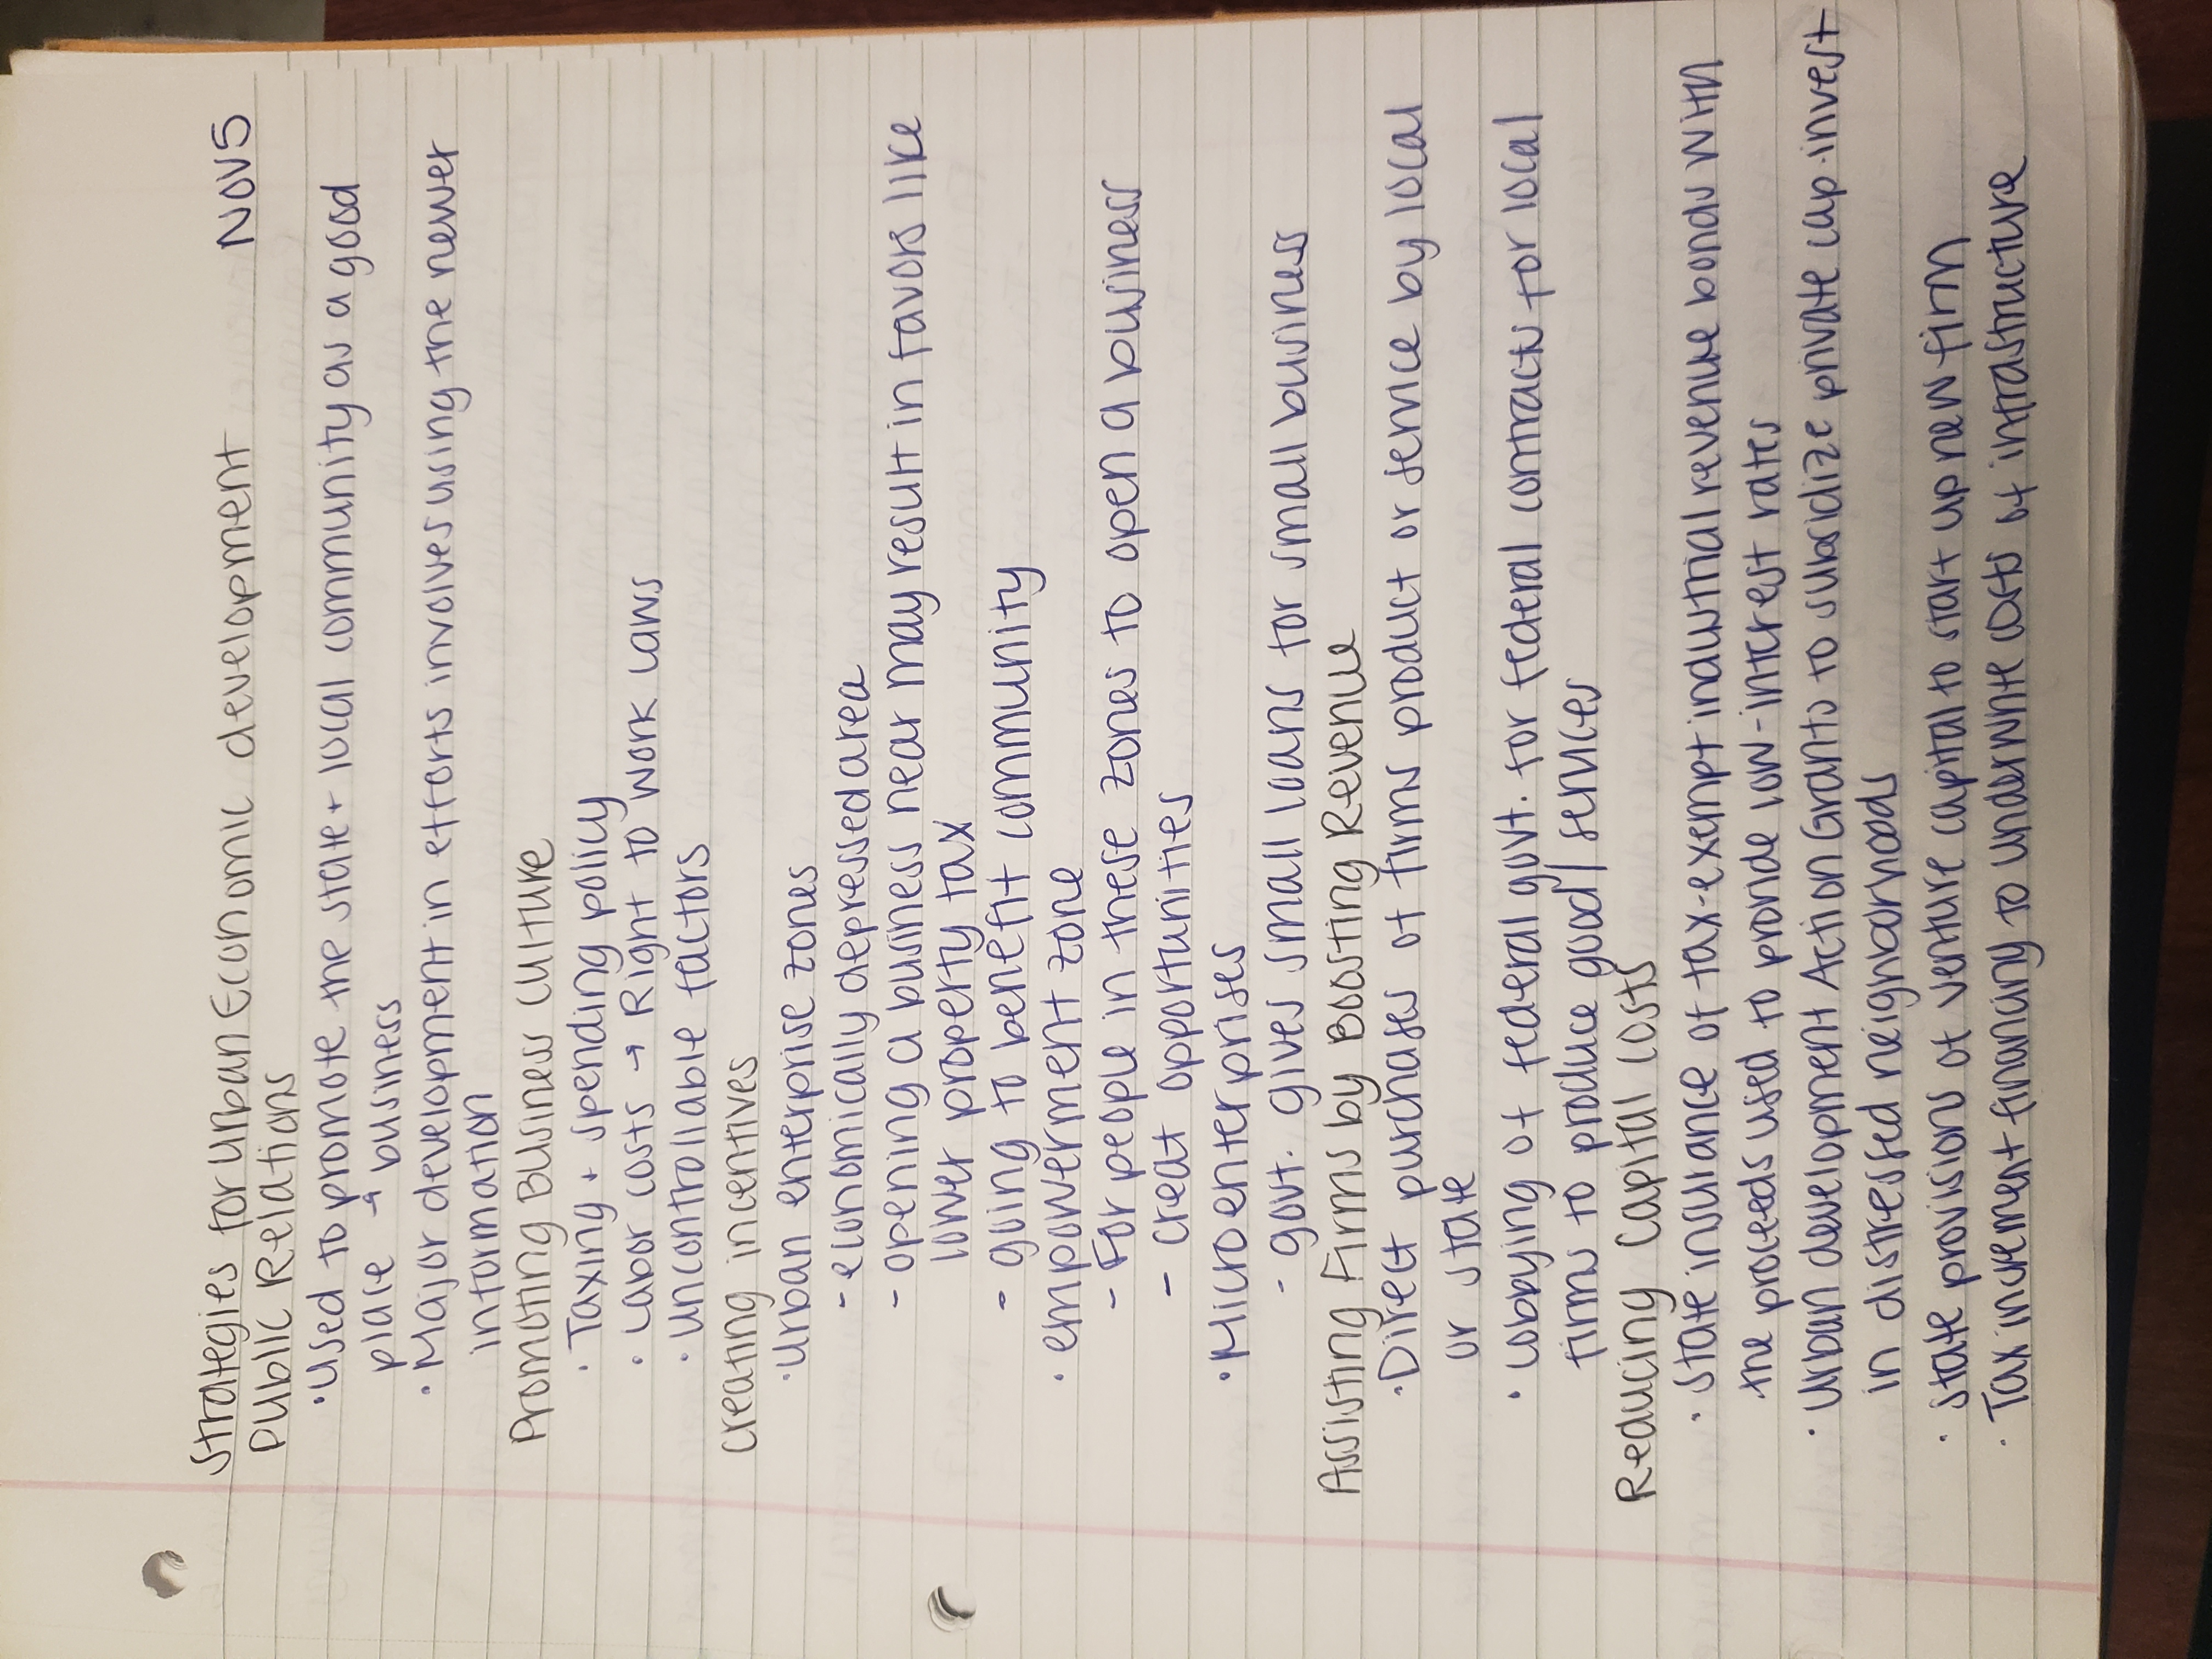 Strategies for Urban Economic development NOV5
Public Relations
• Used to promote the state + local community as a good
place → business
• Major development in efforts involves using the newer
information
Promoting Business Culture
• Taxing + spending policy
• Labor costs → Right to Work Laws
• uncontrollable factors
creating incentives
• Urban enterprise zones
- economically depressed area
- opening a business near may result in favors like
lower property tax
- going to benefit community
• empowerment zone
- For people in these zones to open a business
- creat opportunities
• Microenterprises
- govt. gives small loans for small business
Assisting Firms by Boosting Revenue
• Direct purchases of firms product or service by local
or state
• Lobbying of federal govt. for federal contracts for local
firms to produce good/services
Reducing Capital Costs
• State insurance of tax-exempt industrial revenue bonds with
the proceeds used to provide low-interest rates
• Urban development Action Grants to subsidize private cap. invest
in distressed neighborhoods
• State provisions of venture capital to start up new firm
• Tax increment financing to underwrite costs of infrastructure